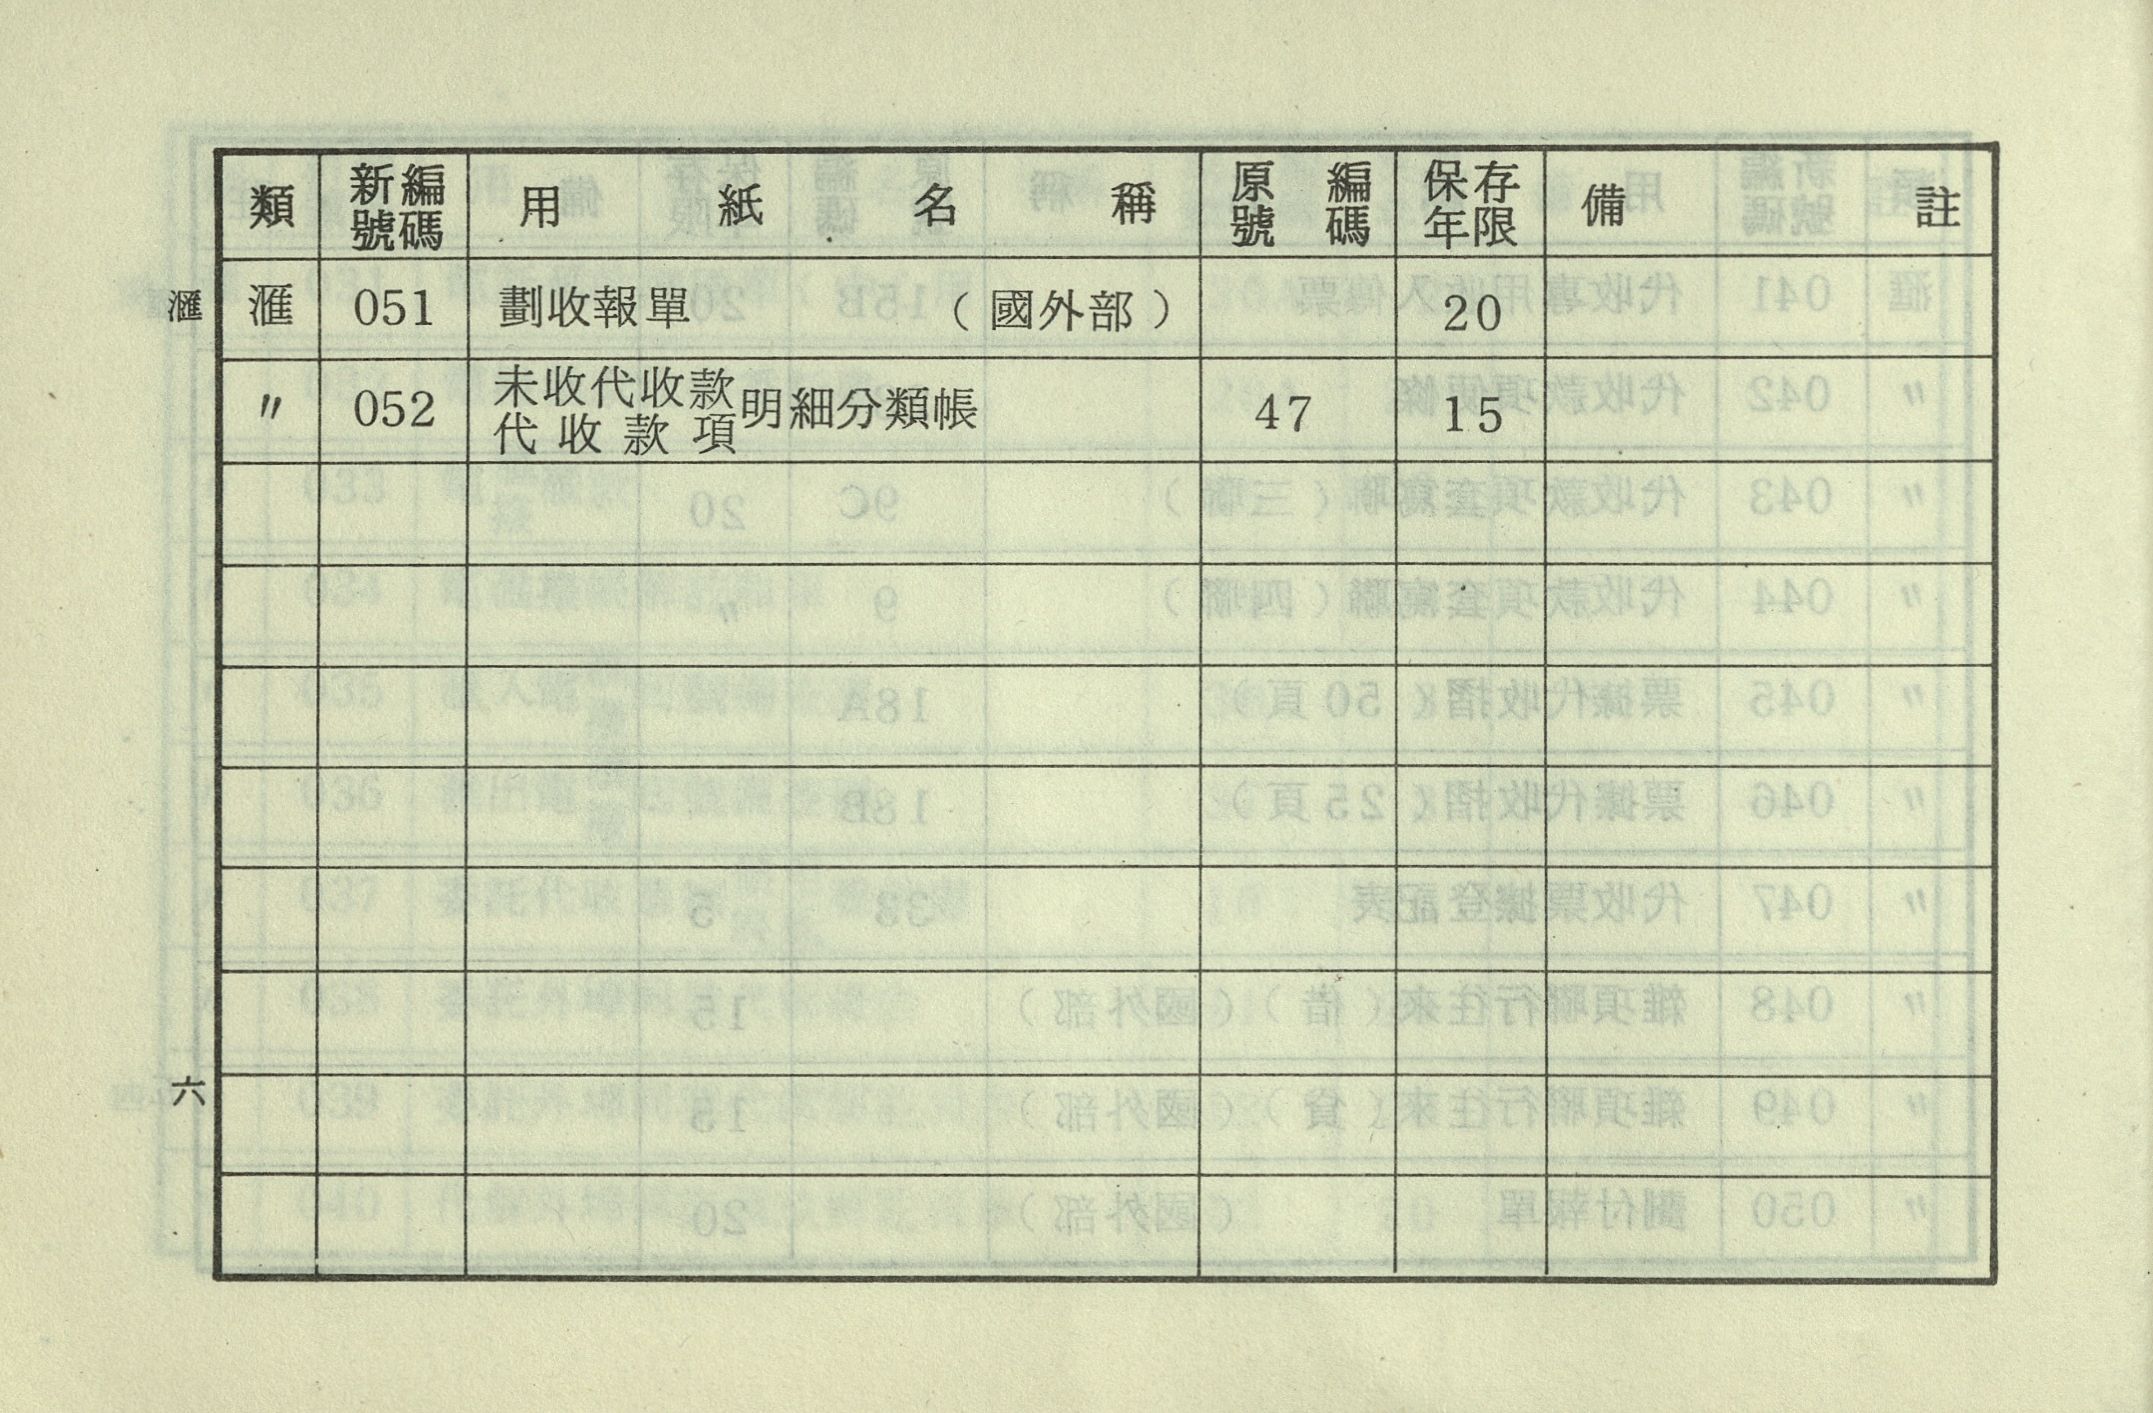 類 新編號碼 用紙名稱 原編號碼 保存年限 備註
滙 滙 051 劃收報單 (國外部) 20
〃 052 未收代收款 代收款項 明細分類帳 47 15
六